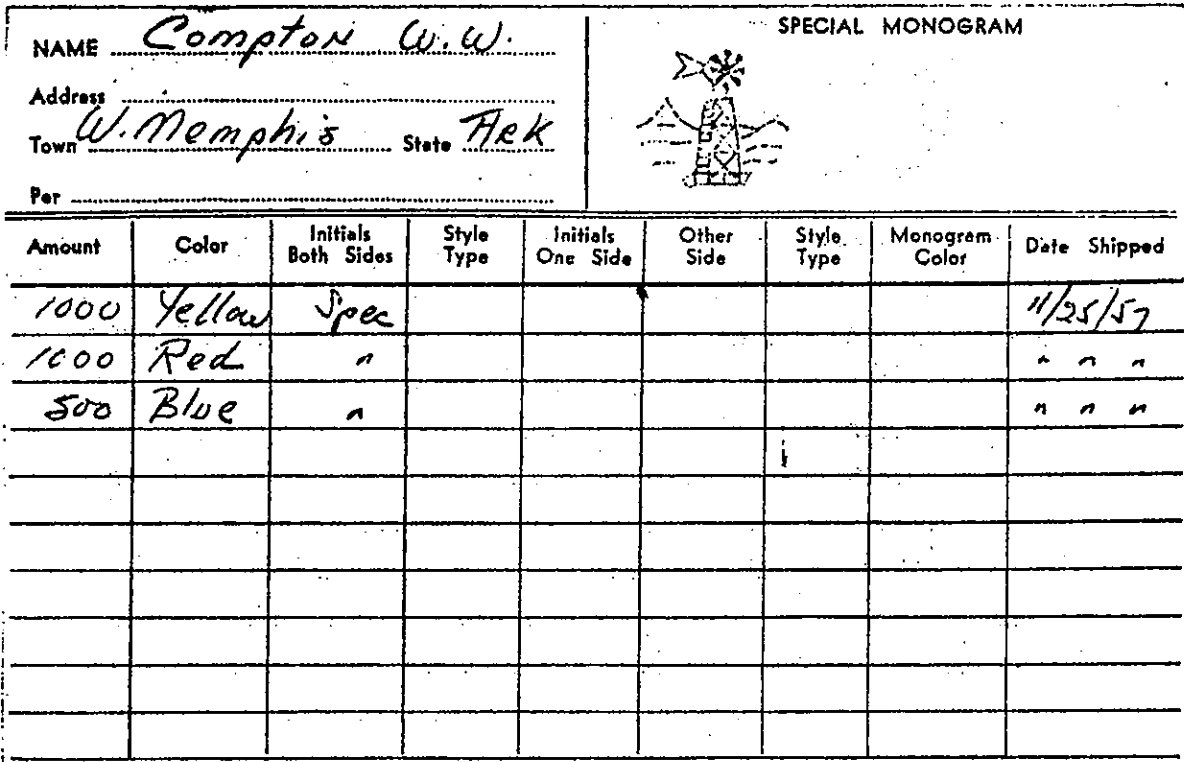 NAME Compton W.W.
SPECIAL MONOGRAM
Address
Town W. Memphis State Ark
Per
Amount Color Initials Both Sides Style Type Initials One Side Other Side Style Type Monogram Color Date Shipped
1000 Yellow Spec 11/25/57
1000 Red " " " "
500 Blue " " " "